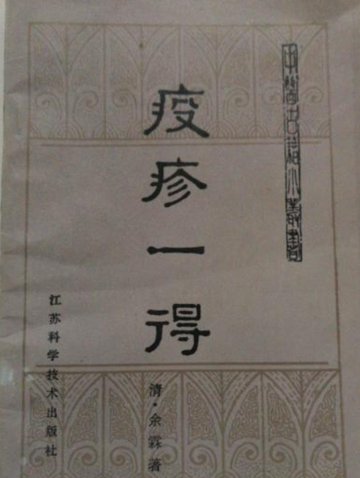 中医古籍小丛书
疫疹一得
清·余霖著
江苏科学技术出版社